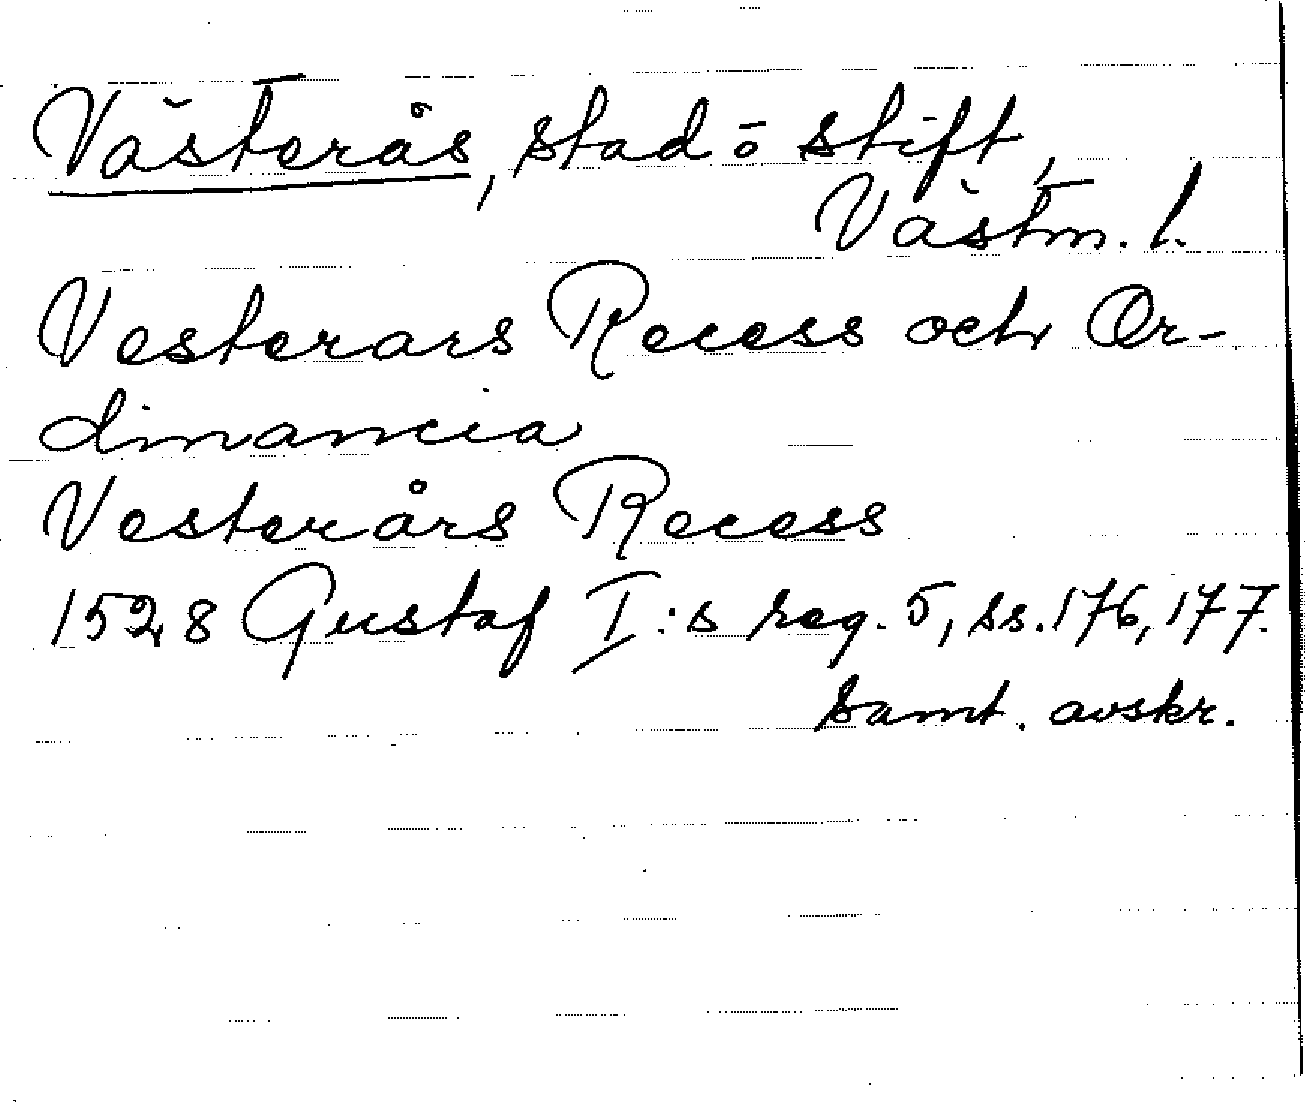 Västerås, stad o stift,
Västm. l.
Vesterars Recess och Or-
dinancia
Vesterårs Recess
1528 Gustaf I:s reg. 5, ss. 176, 177.
Samt. avskr.